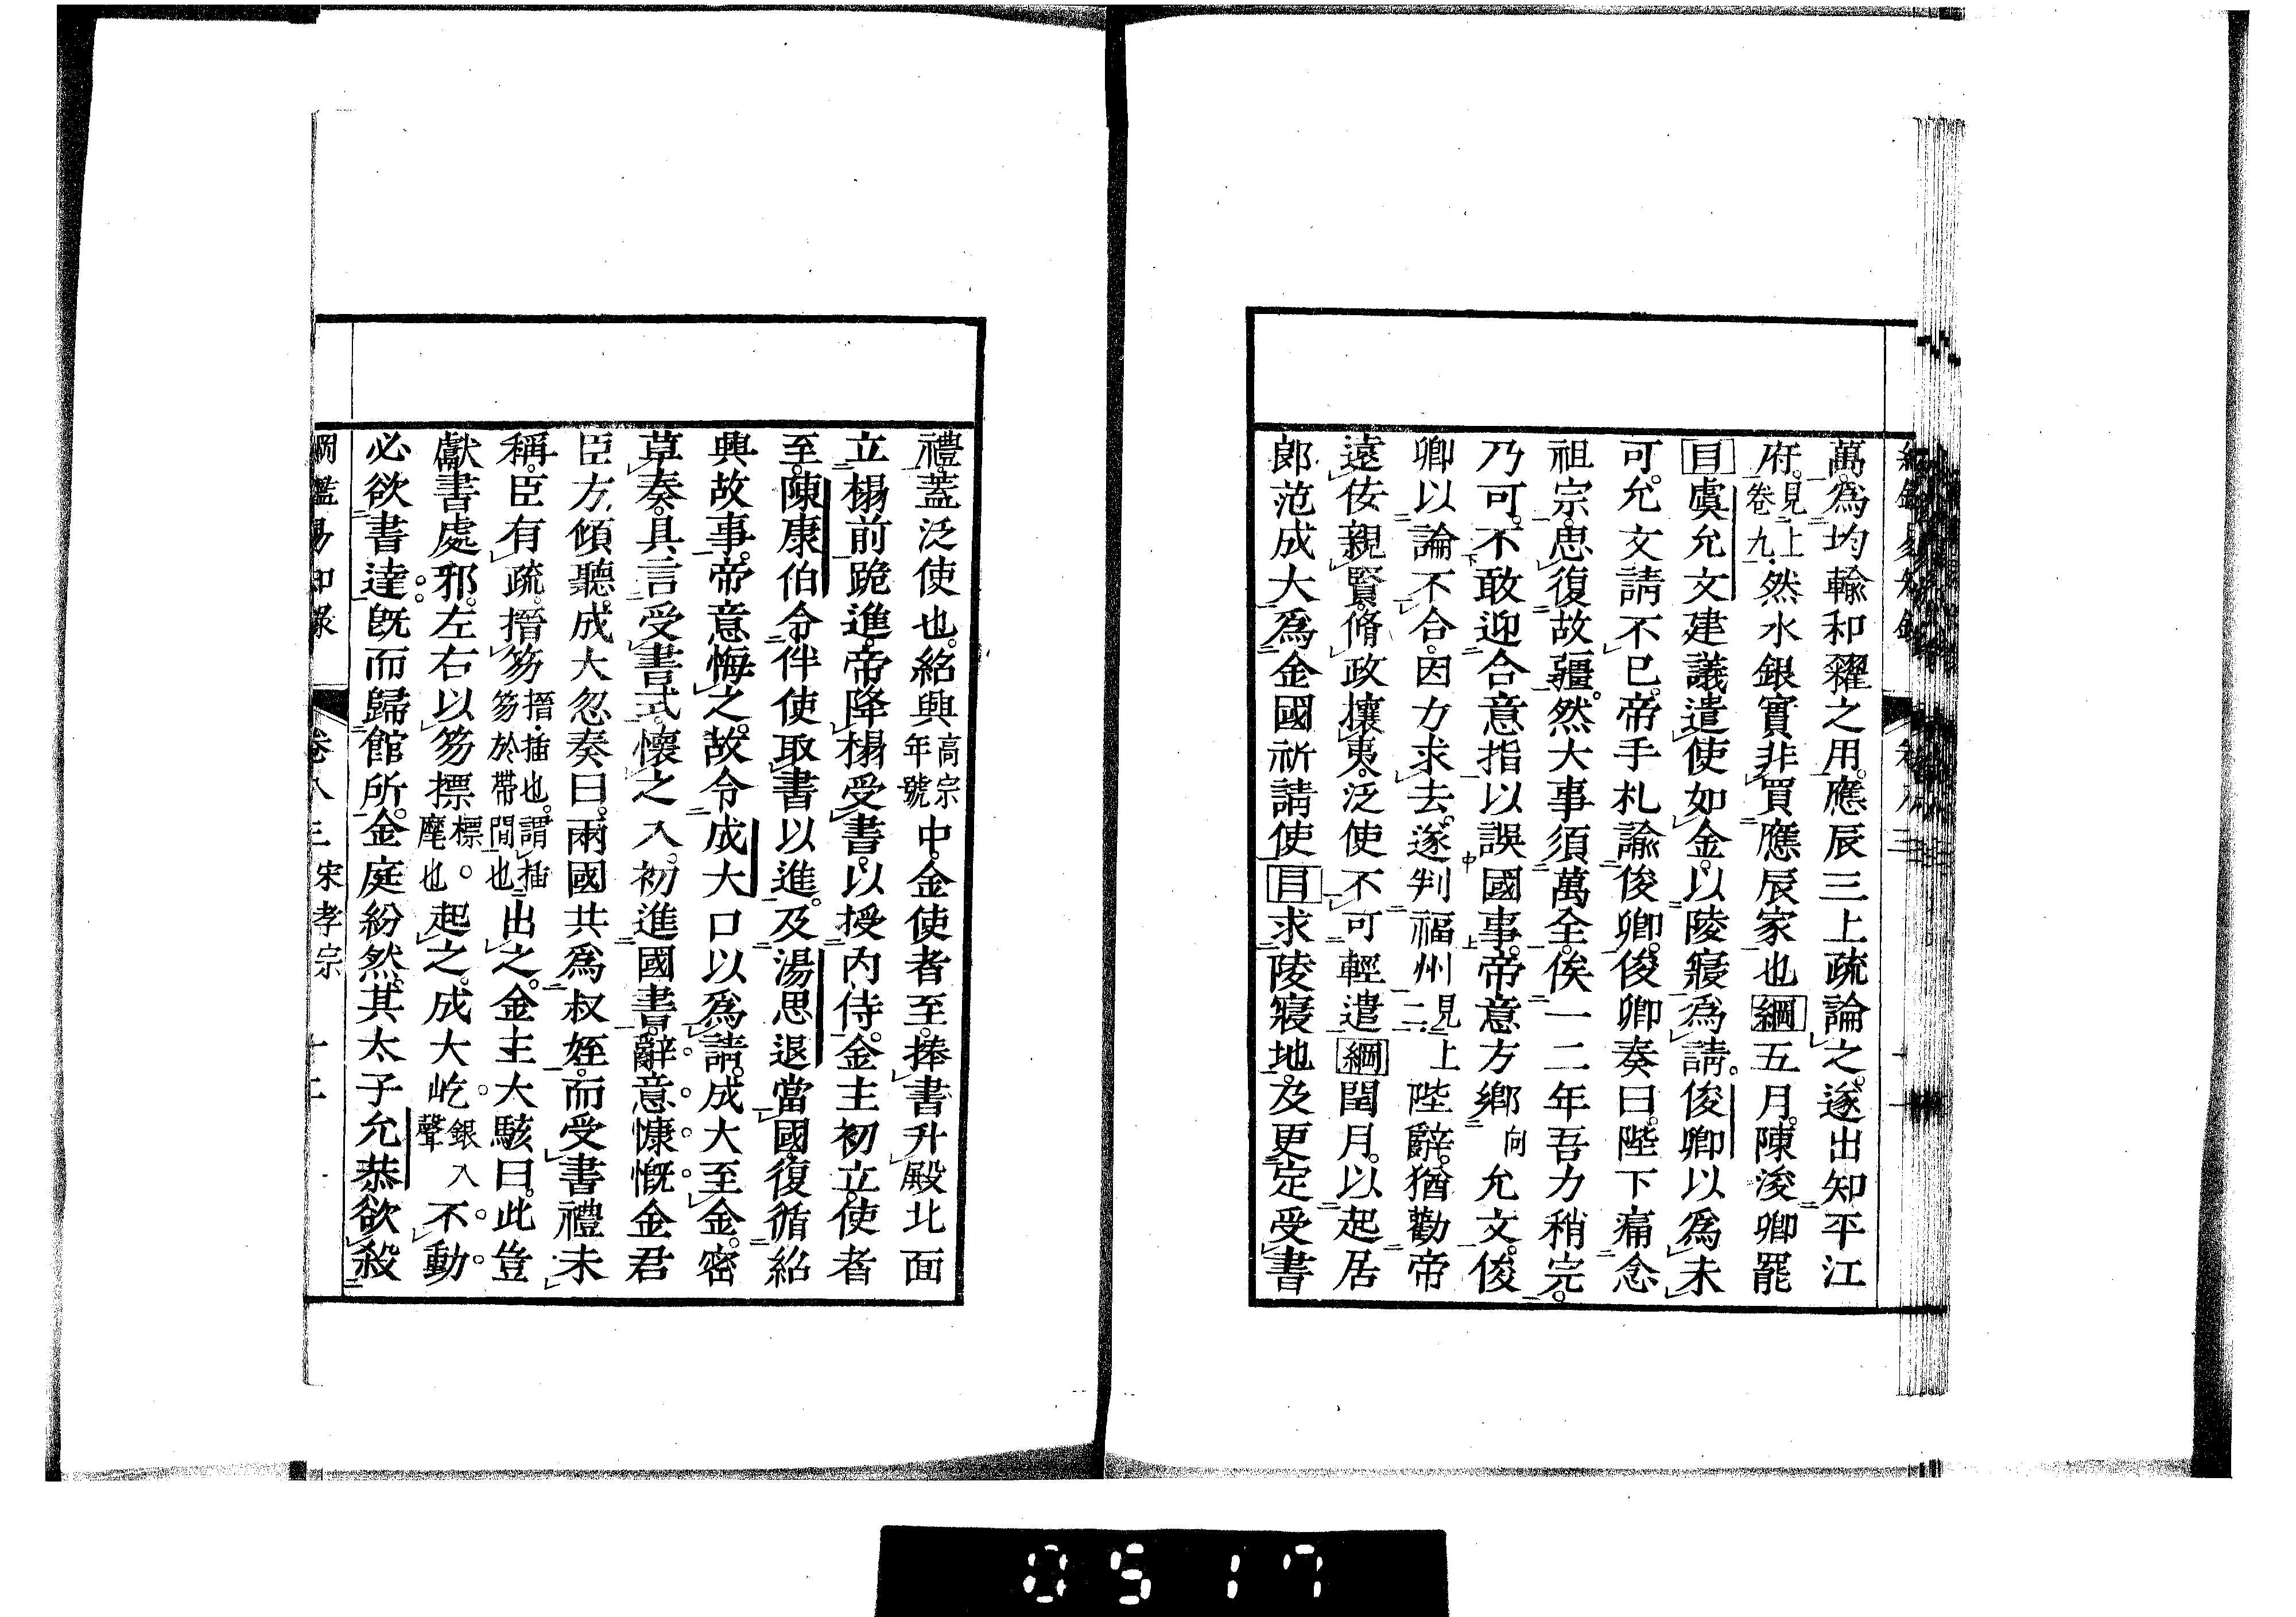 萬。爲均輸和糴之用。應辰三上疏論之。遂出知平江
府。見上卷九.然水銀實非買應辰家也綱五月。陳浚卿罷
目虞允文建議遣使如金。以陵寢爲請。俊卿以爲未
可。允文請不已。帝手札諭俊卿。俊卿奏曰。陛下痛念
祖宗。思復故疆。然大事須萬全。俟一二年吾力稍完。
乃可。不敢迎合意指以誤國事。帝意方鄉向允文。俊
卿以論不合。因力求去。遂判福州見上二.陛辭。猶勸帝
遠佞親賢。脩政攘夷。泛使不可輕遣綱閏月。以起居
郎范成大爲金國祈請使目求陵寢地。及更定受書
禮。蓋泛使也。紹興高宗年號中。金使者至。捧書升殿北面
立榻前跪進。帝降榻受書。以授内侍。金主初立。使者
至。陳康伯令伴使取書以進。及湯思退當國。復循紹
興故事。帝意悔之。故令成大口以爲請。成大至金。密
草奏。具言受書式。懷之入。初進國書。辭意慷慨金君
臣方傾聽。成大忽奏曰。兩國共爲叔姪。而受書禮未
稱。臣有疏。搢笏搢.插也。謂插笏於帶間也出之。金主大駭曰。此豈
獻書處邪。左右以笏摽標。麾也起之。成大屹銀入聲不動
必欲書達。既而歸館所。金庭紛然。其太子允恭欲殺
綱鑑易知録　卷八三　宋孝宗　十二
0517